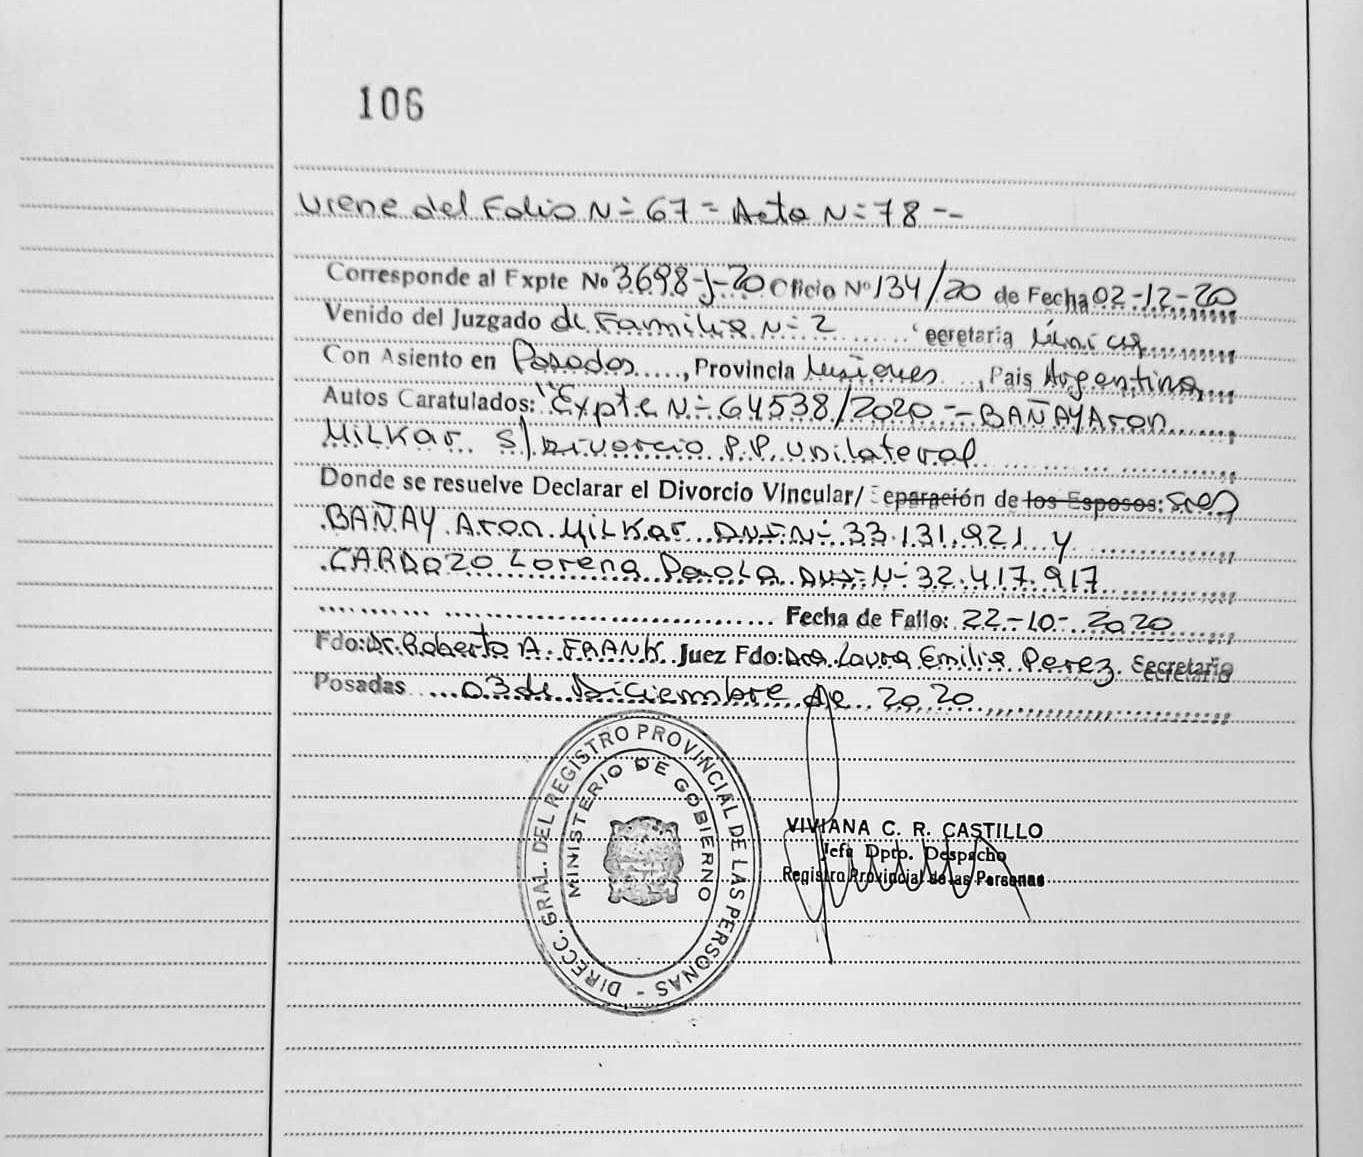 106
Viene del Folio Nº 67 = Acta Nº 78 --
Corresponde al Expte Nº 3698-J-20 Oficio Nº 134/20 de Fecha 02-12-20
Venido del Juzgado de Familia Nº 2 Secretaría Única
Con Asiento en Posadas, Provincia Misiones, Pais Argentina
Autos Caratulados: "Expte Nº 64538/2020 - BAÑAY Aron
Milkar s/ Divorcio P.P. Unilateral
Donde se resuelve Declarar el Divorcio Vincular/ Separación de los Esposos: Sres
BAÑAY Aron Milkar DNI Nº 33.131.921 y
CARDOZO Lorena Paola DNI Nº 32.417.917
Fecha de Fallo: 22-10-2020
Fdo: Dr. Roberto A. FRANK Juez Fdo: Dra. Laura Emilia Perez Secretaria
Posadas 03 de Diciembre de 2020
DIRECC. GRAL. DEL REGISTRO PROVINCIAL DE LAS PERSONAS -
MINISTERIO DE GOBIERNO
VIVIANA C. R. CASTILLO
Jefa Dpto. Despacho
Registro Provincial de las Personas